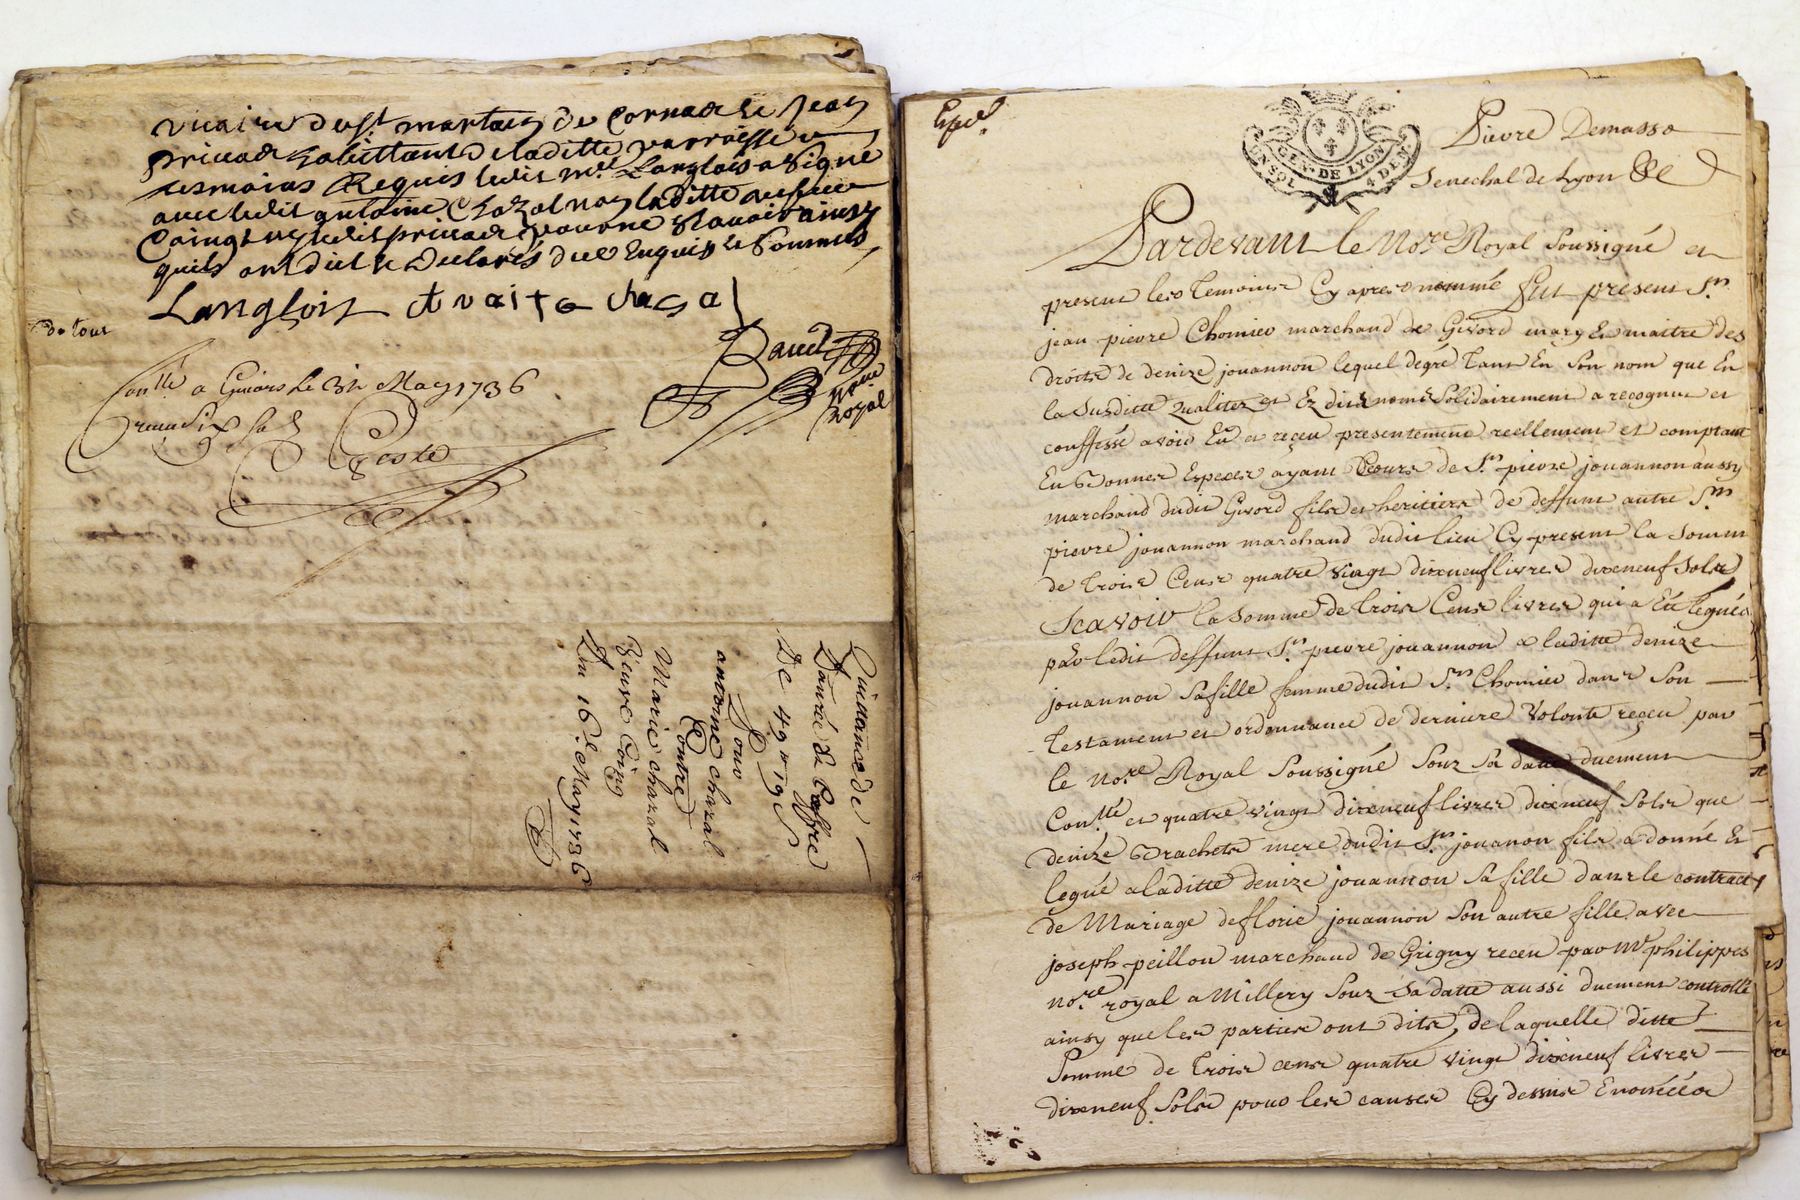 vicaire de st martin de Cornas le Jean
habittant de laditte parroisse
Requis ledit mre Langlois a signé
avec ledit antoine Chazal non laditte
ledit
quils ont dit et declarés de ce Enquis et Sommés
Langlois chazal
Royal
Conllé a Givors le 31e May 1736
Quittance de
De 49lt 19s
Pour
antoine chazal
Contre
Marie chazal
Du 16e May 1736
GEN. DE LYON
UN SOL 4 DEN
Pierre Demasso
Senechal de Lyon &c
Pardevant le Nore Royal soussigné et
present les temoins cy apres nommé fut present Sr
jean pierre Chomier marchand de Givord mary et maitre des
droits de denize jouannon lequel degré tant En son nom que En
la susditte qualitez et Ez dits noms solidairement a recognu et
confessé avoir Eu et reçeu presentement reellement et comptant
En bonnes Especes ayant Cours de Sr pierre jouannon aussy
marchand dudit Givord fils et heritier de deffunt autre Sr
pierre jouannon marchand dudit lieu Cy present la somm
de trois Cens quatre vingt dixneuf livres dixneuf sols
Scavoir la somme de trois Cens livres qui a Eté leguée
par ledit deffunt Sr pierre jouannon a laditte denize
jouannon sa fille femme dudit Sr Chomier dans son
testament et ordonnance de derniere volonté reçeu par
le Nore Royal soussigné souz sa datte duement
Conllé et quatre vingt dixneuf livres dixneuf sols que
denize mere dudit Sr jouanon fils a donné Et
legué a laditte denize jouannon sa fille dans le contract
de Mariage de florie jouannon son autre fille avec
joseph peillon marchand de Grigny receu par Me philippes
nore royal a Millery souz sa datte aussi duement controllé
ainsy que les parties ont dits, de laquelle ditte
somme de trois cens quatre vingt dixneuf livres
dixneuf sols pour les causes Cy dessus Enoncée